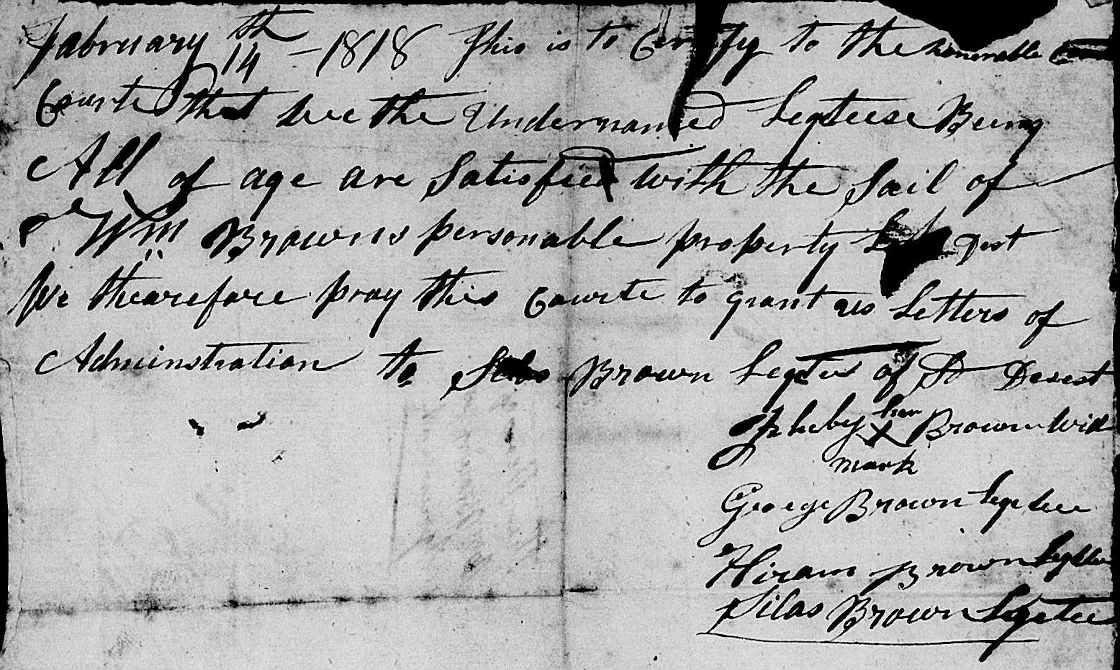 February 14th - 1818 This is to Certify to the honorable
Courte that wee the Undernamed Legteese Being
All of age are Satisfied with the Sail of
Wm Browns personable property Dest
We thearefore pray this Courte to grant us Letters of
Adminstration to Silas Brown Legtee of Sd Desest
Pheby her X Brown Wid
mark
George Brown Legtee
Hiram Brown Legtee
Silas Brown Legetee